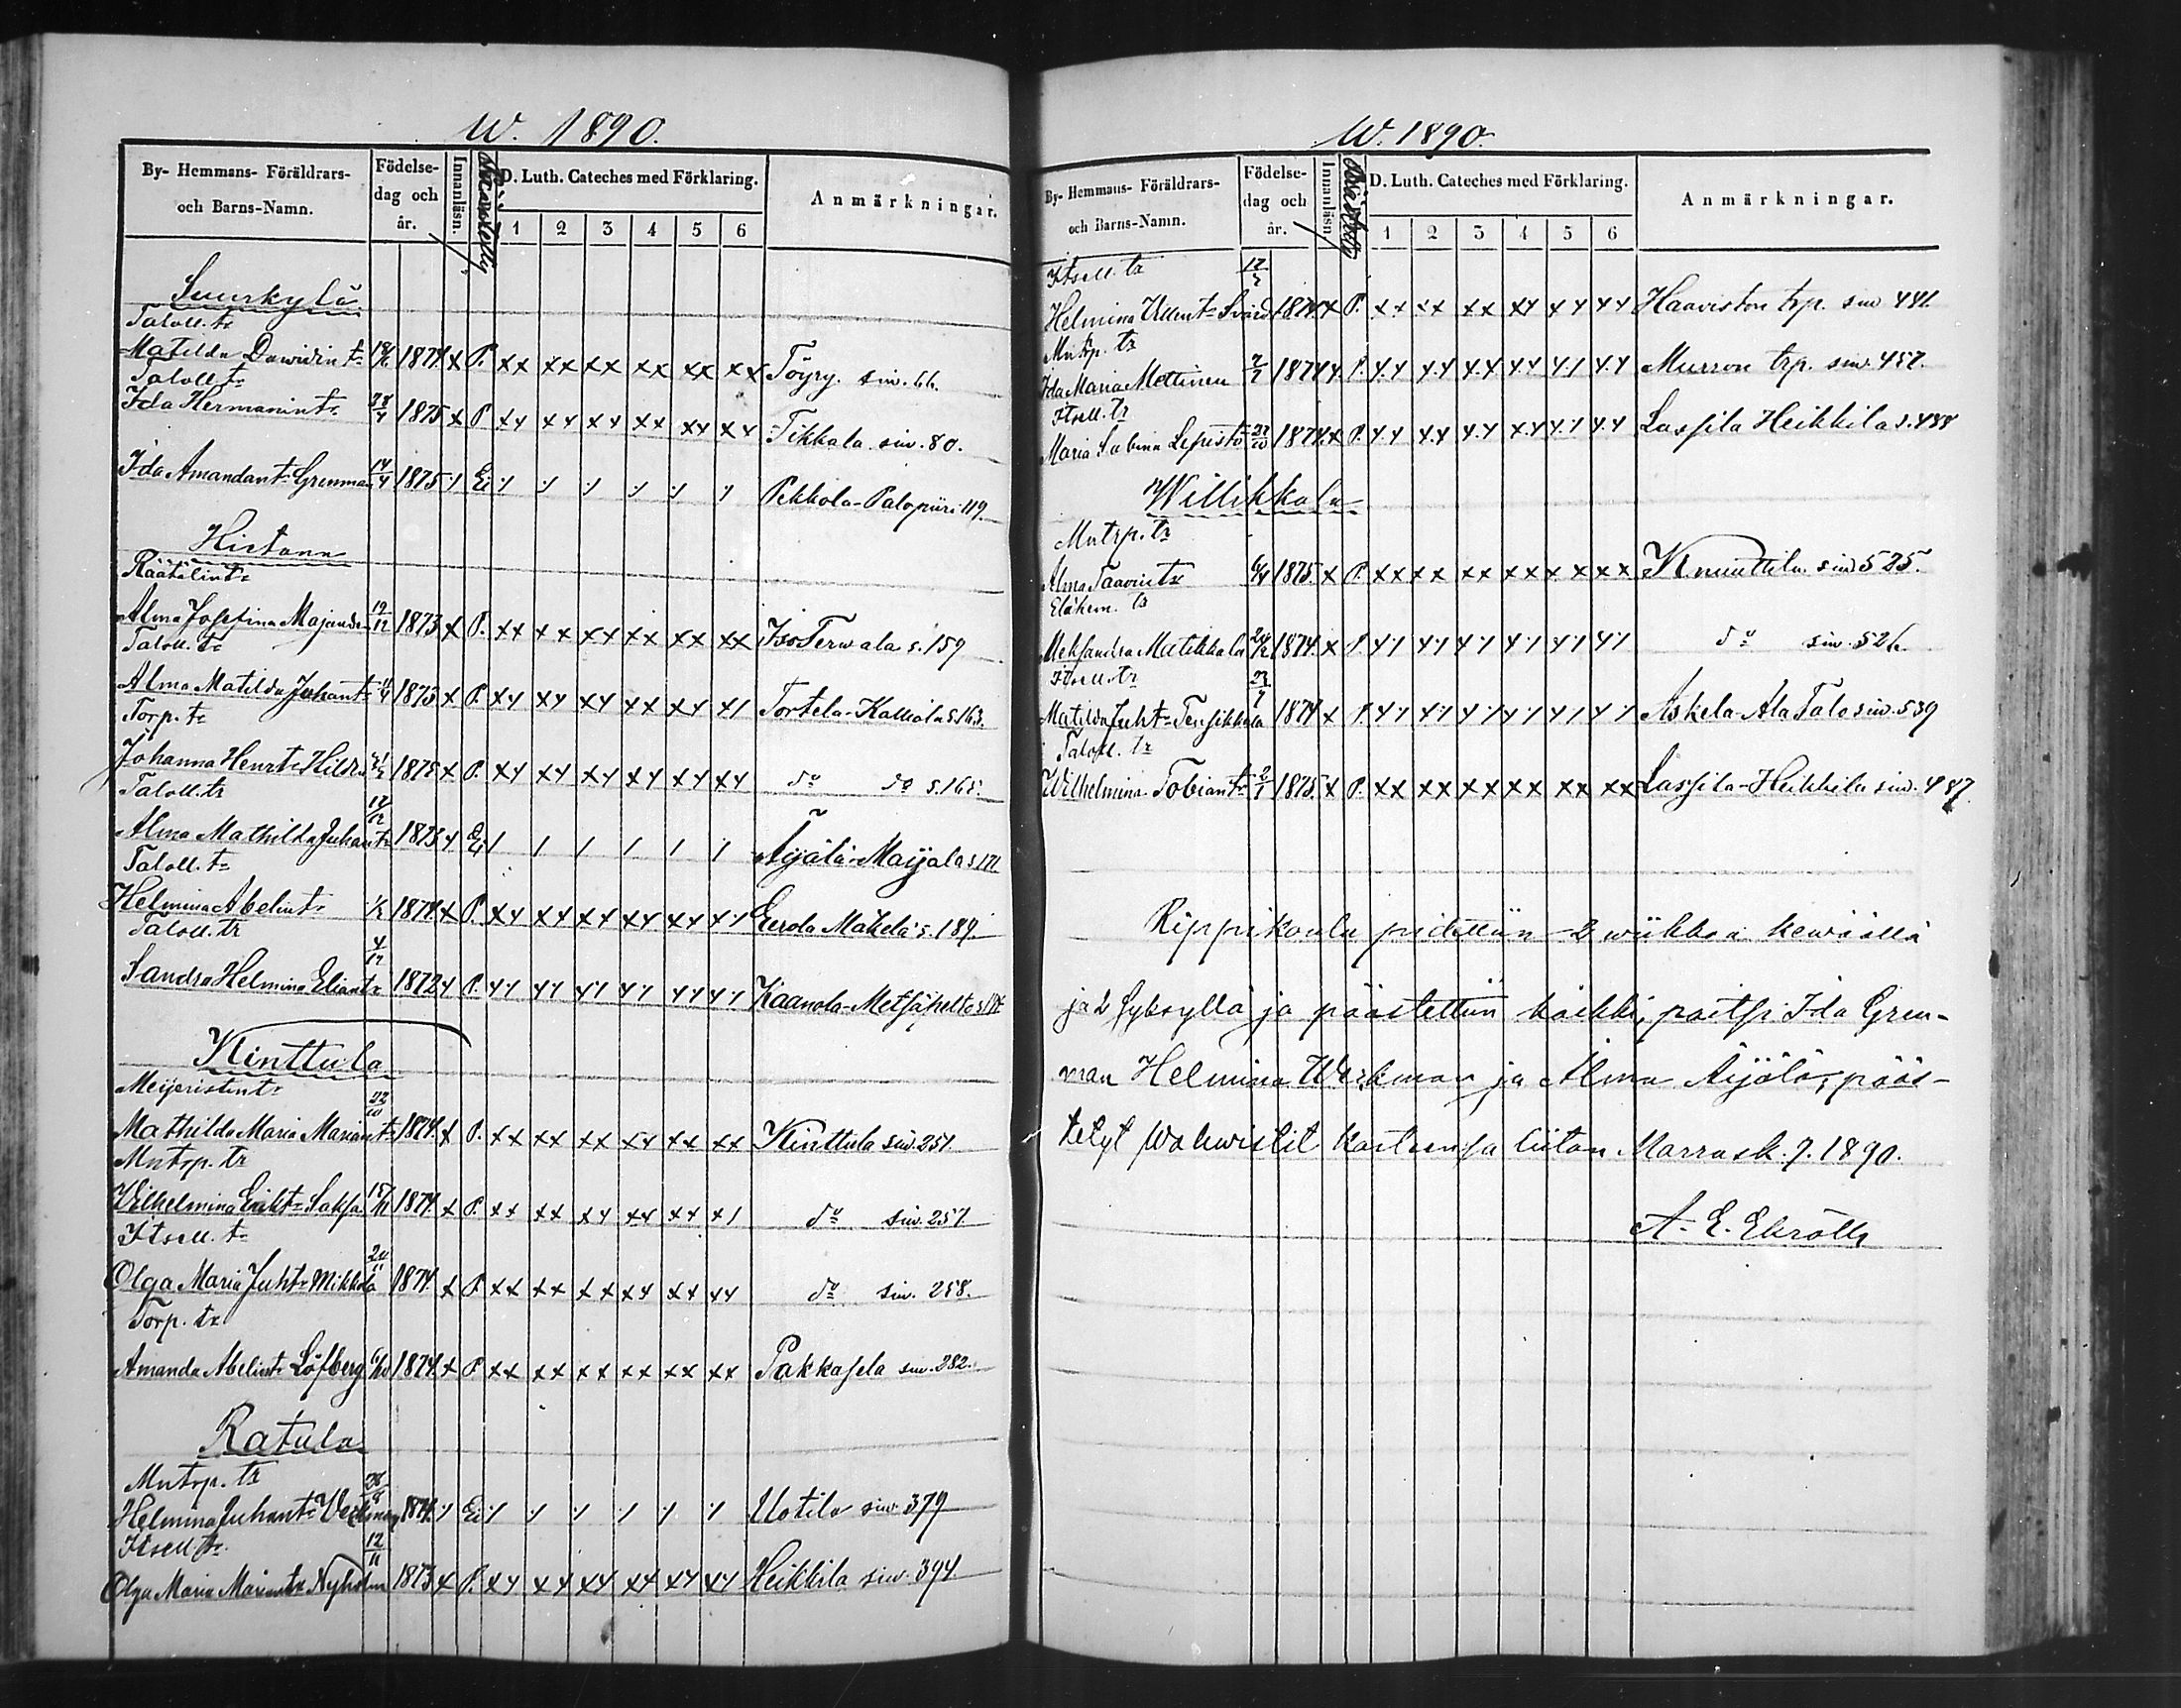 W. 1890.
By- Hemmans- Föräldrars- och Barns-Namn. Födelse-dag och år. Innanläsn. D. Luth. Cateches med Förklaring. Anmärkningar.
1 2 3 4 5 6
Suurkylä
Taloll. tr
Matilda Dawidin tr 1874 x P. xx xx xx xx xx xx Töyry. siw. 66.
Taloll. tr
Ida Hermanin tr 28/4 1875 x P xx xx xx xx xx xx Tikkala siw. 80.
Ida Amandan tr Grenman 14/4 1875 ·/ Ei ·/ ·/ ·/ ·/ ·/ ·/ Pekkola-Palopiiri 119.
Hietana
Räätälin tr
Alma Josefina Majander 19/12 1873 x P. xx xx xx xx xx xx Iso Terwala s. 159
Taloll. tr
Alma Matilda Juhan tr 1873 x P. xx xx xx xx xx x/ Tortela-Kalliala s. 163.
Torp. tr
Johanna Henr. tr 1875 x P. xx xx xx xx xx xx do do s. 165.
Taloll. tr
Alma Mathilda Juhan tr 1873 x Ei / / / / / / Äijälä-Maijala s. 171.
Taloll. tr
Helmina Abelin tr 1874 x P. xx xx xx xx xx x/ Eerola Mäkelä s. 189.
Taloll. tr
Sandra Helmina Elian tr 4/12 1872 x P. x/ x/ x/ x/ x/ x/ Kaanola-Metsäpelto
Kinttula
Meijeristin tr
Mathilda Maria Marian tr 22/10 1874 x P. xx xx xx xx xx xx Kinttula siw. 251
Mntrp. tr
Wilhelmina Erikt. Saksa 15/11 1874 x P. xx xx xx xx xx x/ do siw. 257
Itsell. tr
Olga Maria Juh. tr Mikkola 1874 x P xx xx xx xx xx xx do siw. 258.
Torp. tr
Amanda Abelin tr Löfberg 6/10 1874 x P xx xx xx xx xx xx Pakkasela siw. 282.
Ratula
Mntrp. tr
Helmina Juhan tr Verkman 1874 ·/ Ei ·/ ·/ ·/ ·/ ·/ ·/ Uotila siw. 379
Itsell. tr
Olga Maria Marian tr Nyholm 12/11 1873 x P. xx xx xx xx xx xx Heikkila siw. 394
W. 1890.
By- Hemmans- Föräldrars- och Barns-Namn. Födelse-dag och år. Innanläsn. D. Luth. Cateches med Förklaring. Anmärkningar.
1 2 3 4 5 6
Itsell. tr
Helmina Villen tr Svärd 1874 x P. xx xx xx xx xx xx Haaviston trp. siw 441.
Mntrp. tr
Ida Maria Mettinen 1874 x P. xx xx xx xx x/ xx Murron trp. siw. 457.
Itsell. tr
Maria Sabina Lepistö 1874 x P. xx xx xx xx x/ xx Lassila Heikkila s. 488
Willikkala
Mntrp. tr
Alma Taavin tr 1875 x P. xx xx xx xx xx xx Knuuttila siw 525.
Eläkem. tr
Aleksandra Matikkala 1874. x P. x/ x/ x/ x/ x/ x/ do siw. 526.
Itsell. tr
Matilda Juh. tr 1874 x P. x/ x/ x/ x/ x/ x/ Askela-Ala Talo siw. 539
Taloll. tr
Wilhelmina Tobian tr 1875. x P. xx xx xx xx xx xx Lassila-Heikkila siw. 487.
Rippikoulu pidettiin 2 wiikkoa kewäällä
ja 2 syksyllä ja päästettiin kaikki, paitsi Ida Gren-
man Helmina Werkman ja Alma Äijälä; pääs-
tetyt wahwistit kasteensa liiton Marrask. 9. 1890.